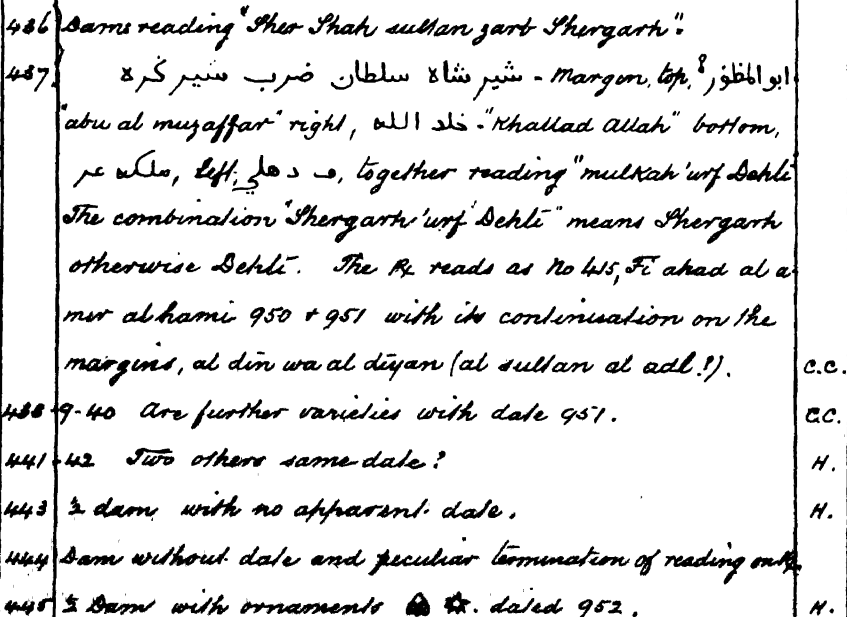 436 Dams reading "Sher Shah sultan zarb Shergarh".
437 شير شاه سلطان ضرب شير گره - Margin, top, ابو المظفر
"abu al muzaffar" right, خلد الله - "Khallad Allah" bottom,
ملكه عر, left, ف دهلي, together reading "mulkah 'urf Dehlī"
The combination "Shergarh 'urf Dehlī" means Shergarh
otherwise Dehlī. The Rx reads as No 415, Fī ahad al a-
mir al hami 950 + 951 with its continuation on the
margins, al din wa al diyan (al sultan al adl?). C.C.
438-9-40 Are further varieties with date 951. C.C.
441-42 Two others same date? H.
443 ½ dam with no apparent date. H.
444 Dam without date and peculiar termination of reading on Rx.
445 ½ Dam with ornaments dated 952. H.